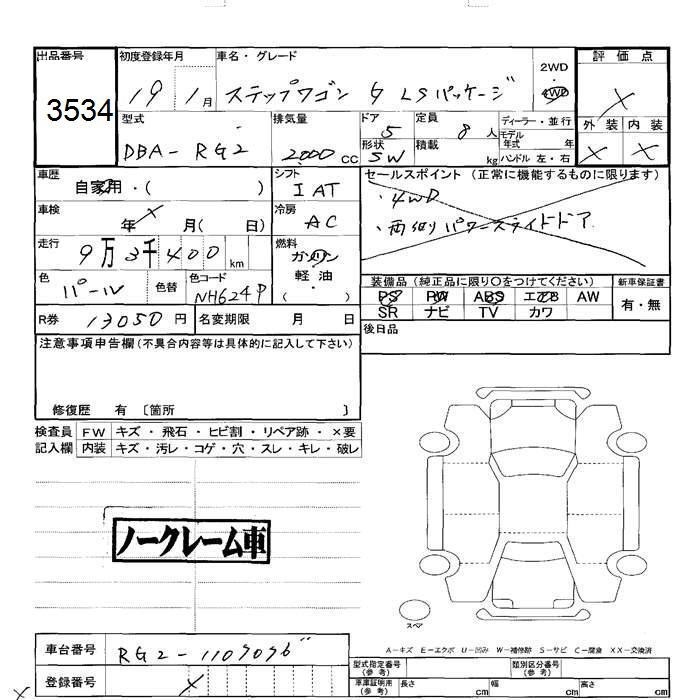 出品番号 初度登録年月 車名・グレード 評価点
3534 19 1月 ステップワゴン G LSパッケージ 2WD・4WD X
型式 排気量 ドア 定員 ディーラー・並行 外装 内装
DBA-RG2 2000 CC 5 8人 モデル年式 年式 X X
形状 SW 積載 kg ハンドル 左・右
車歴 自家用・( ) シフト I AT セールスポイント(正常に機能するものに限ります)
車検 年 X 月( 日) 冷房 AC ・4WD
・両側パワースライドドア
走行 9万3千400 km 燃料 ガソリン 軽油・( )
色 パール 色替 色コード NH624P
装備品(純正品に限り○をつけてください) 新車保証書
PS PW ABS エアB AW 有・無
SR ナビ TV カワ
R券 13050円 名変期限 月 日 後日品
注意事項申告欄(不具合内容等は具体的に記入して下さい)
修復歴 有〔箇所 〕
検査員 FW キズ・飛石・ヒビ割・リペア跡・×要
記入欄 内装 キズ・汚レ・コゲ・穴・スレ・キレ・破レ
ノークレーム車
スペア
A-キズ E-エクボ U-凹み W-補修跡 S-サビ C-腐食 XX-交換済
車台番号 RG2-1109096
登録番号 X
型式指定番号(参考) 類別区分番号(参考)
車庫証明用(参考) 長さ cm 幅 cm 高さ cm
X